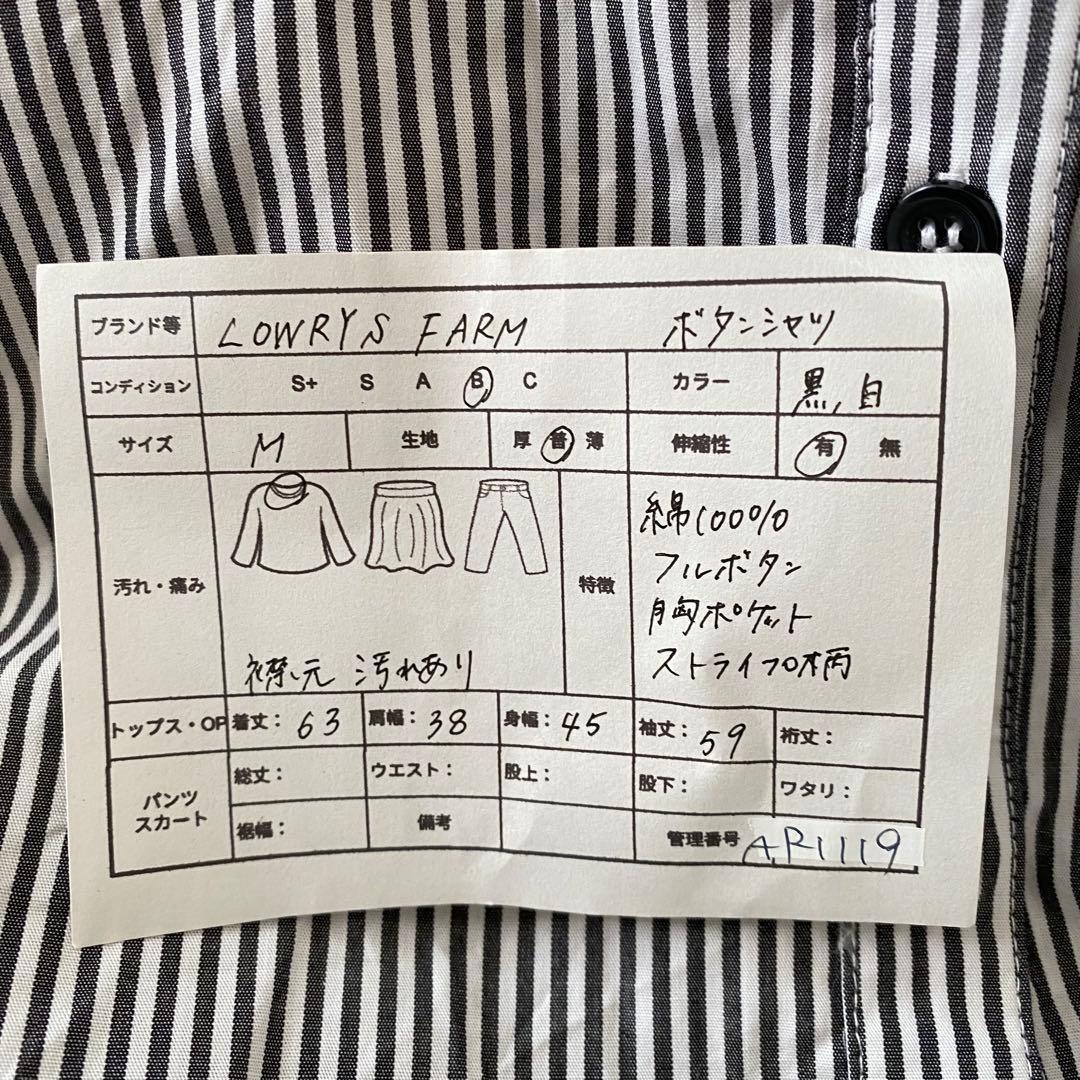 ブランド等 LOWRYS FARM ボタンシャツ
コンディション S+ S A B C カラー 黒,白
サイズ M 生地 厚 普 薄 伸縮性 有 無
汚れ・痛み 襟元 汚れあり
特徴 綿100%
フルボタン
胸ポケット
ストライプ柄
トップス・OP 着丈: 63 肩幅: 38 身幅: 45 袖丈: 59 裄丈:
パンツ
スカート
総丈: ウエスト: 股上: 股下: ワタリ:
裾幅: 備考 管理番号 AR1119